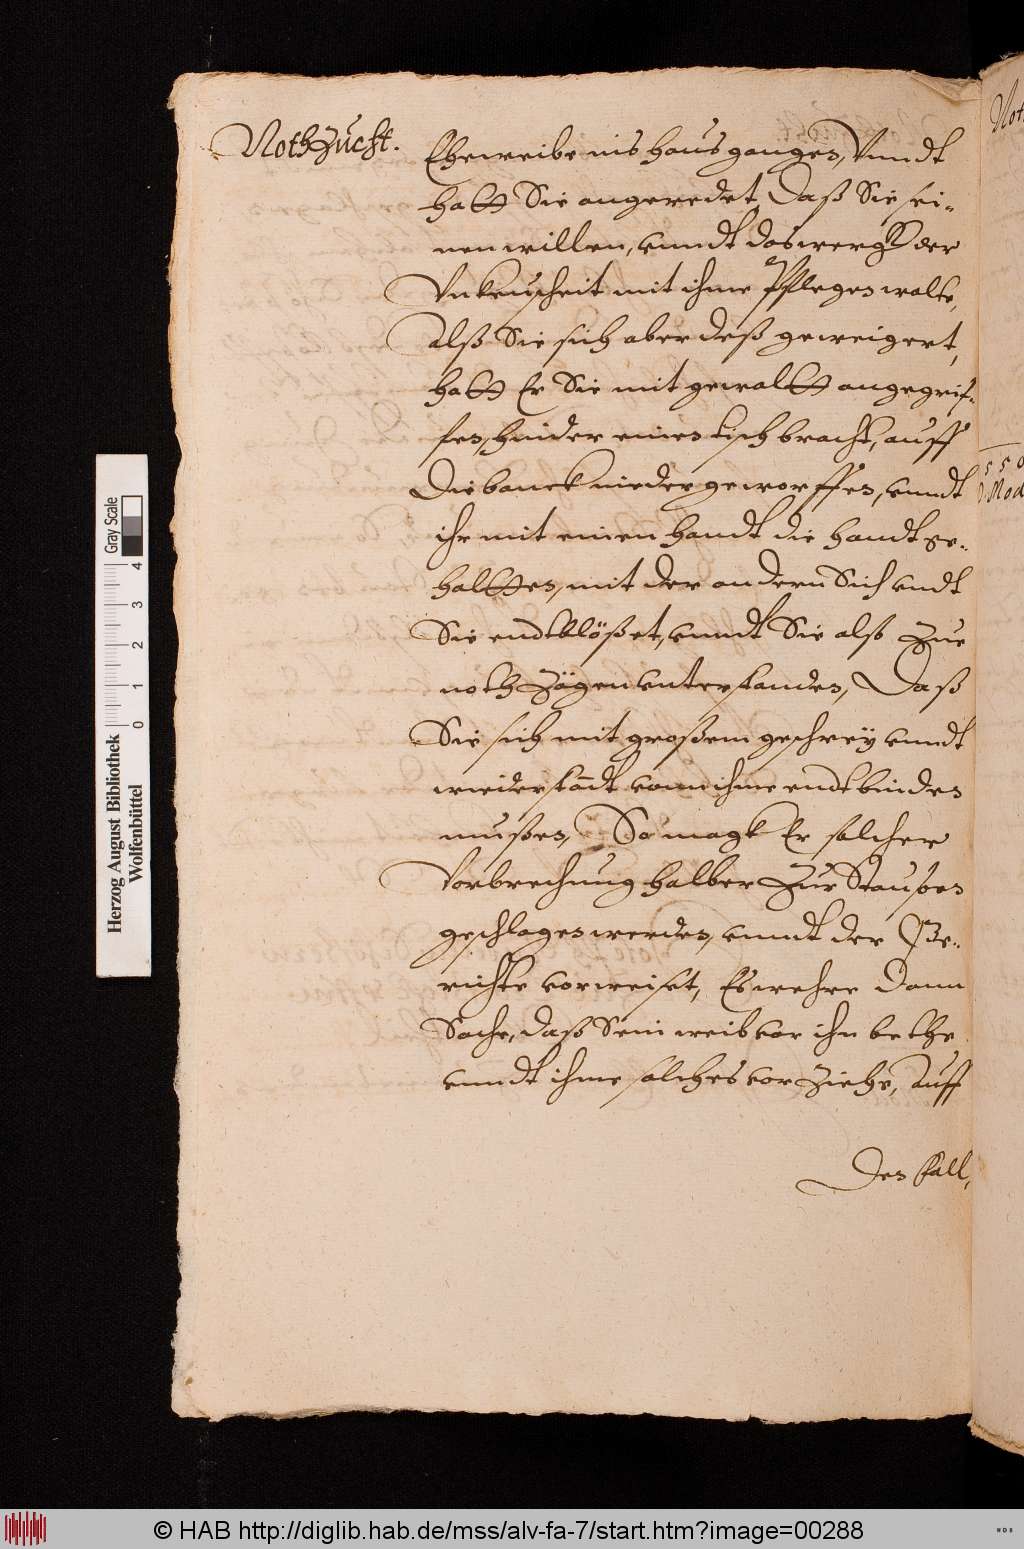 NothZucht.
Eheweibe ins haus gangen, Vnndt
hatt Sie angeredet, Daß Sie sei-
nen willen, vnndt das wergk der
Vnkeuscheit mit ihme Pflegen wolte,
Alß Sie sich aber deß geweigert,
hatt Er Sie mit gewaltt angegrif-
fen, hinder einen tisch bracht, auff
Die banck nieder geworffen, vnndt
ihr mit einen handt die handt ge-
haltten, mit der andern Sich vndt
Sie endtblößet, vnndt Sie alß Zue
noth Zögen vnterstanden, Daß
Sie sich mit großem geschrey vnndt
wiederstadt vonn ihme endtbinden
mußen, So magk Er solcher
Vorbrechung halber Zur Staupen
geschlagen werden, vnndt der Ge-
richte vorweiset, Es wehre dann
Sache, daß Sein weib vor ihn bethe
vnndt ihme solches vorZiehe, Auff
Den Fall,
Not
550
Mod
Gray Scale
0 1 2 3 4
Herzog August Bibliothek
Wolfenbüttel
© HAB http://diglib.hab.de/mss/alv-fa-7/start.htm?image=00288